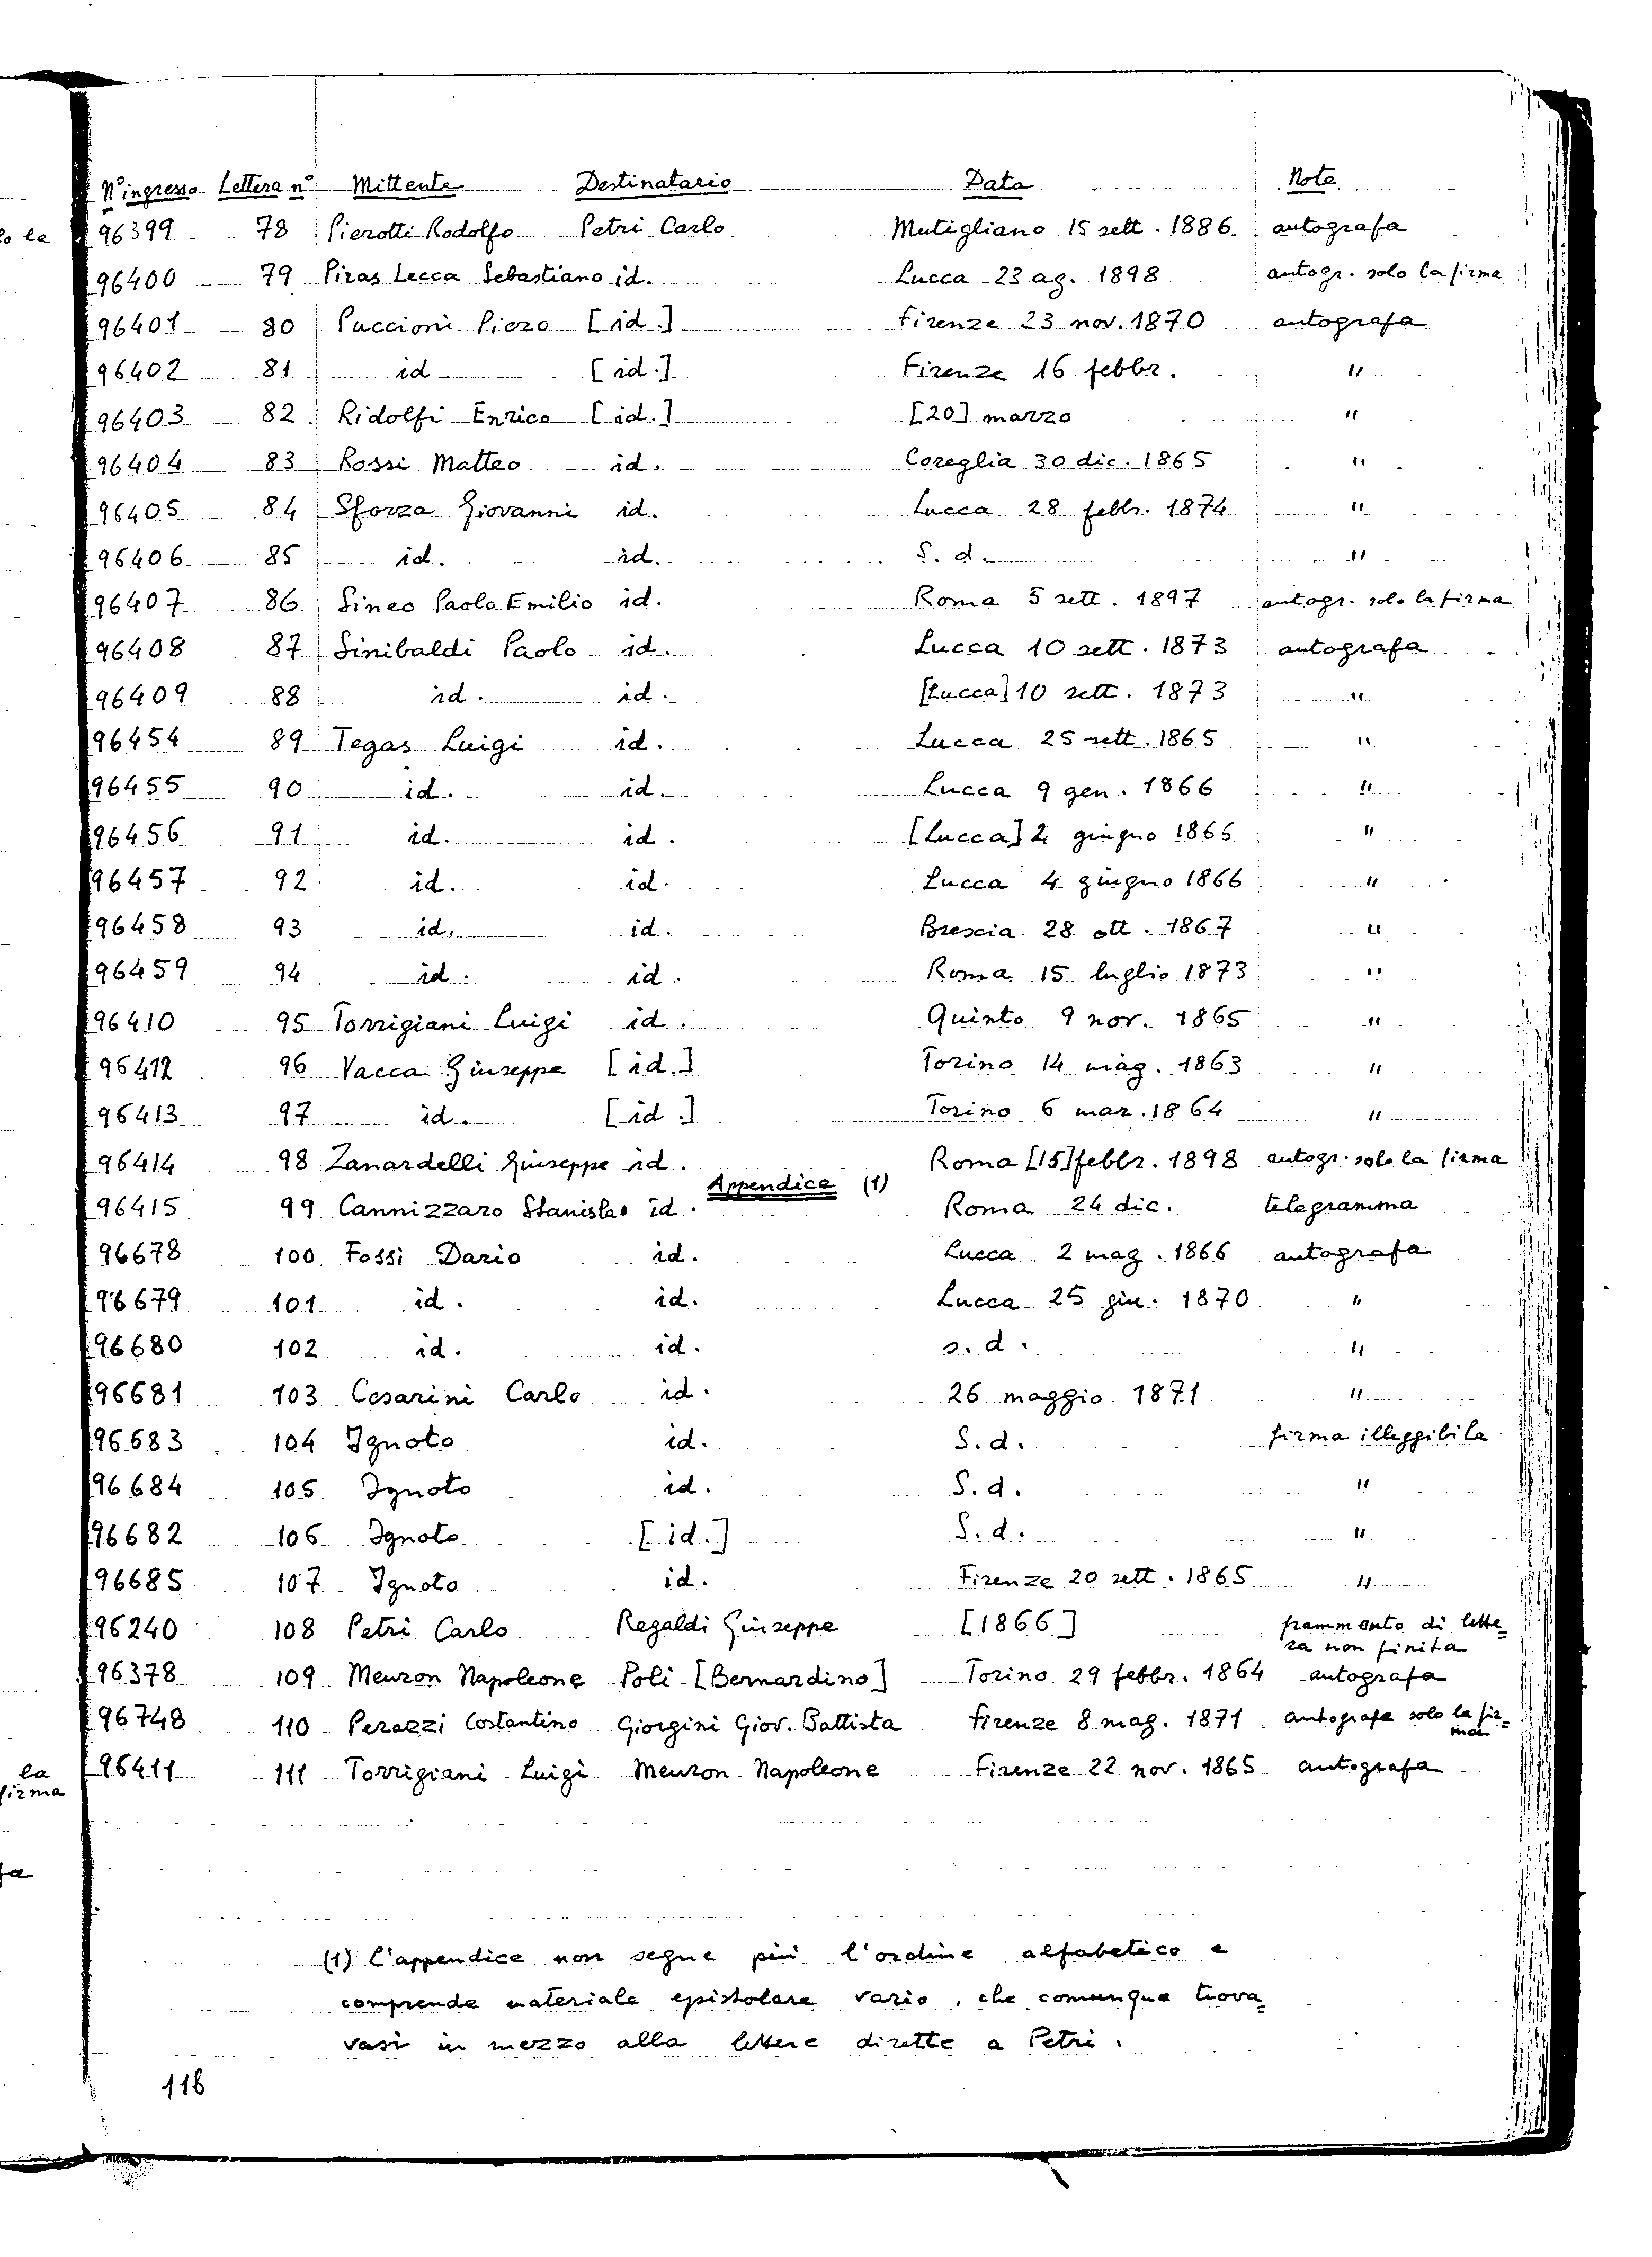 N° ingresso Lettera n° Mittente Destinatario Data Note
96399 78 Pierotti Rodolfo Petri Carlo Mutigliano 15 sett. 1886 autografa
96400 79 Piras Lecca Sebastiano id. Lucca 23 ag. 1898 autogr. solo la firma
96401 80 Puccioni Piero [id.] Firenze 23 nov. 1870 autografa
96402 81 id [id.] Firenze 16 febbr. "
96403 82 Ridolfi Enrico [id.] [20] marzo "
96404 83 Rossi Matteo id. Coreglia 30 dic. 1865 "
96405 84 Sforza Giovanni id. Lucca 28 febbr. 1874 "
96406 85 id. id. S. d. "
96407 86 Sineo Paolo Emilio id. Roma 5 sett. 1897 autogr. solo la firma
96408 87 Sinibaldi Paolo id. Lucca 10 sett. 1873 autografa
96409 88 id. id. [Lucca] 10 sett. 1873 "
96454 89 Tegas Luigi id. Lucca 25 sett. 1865 "
96455 90 id. id. Lucca 9 gen. 1866 "
96456 91 id. id. [Lucca] 2 giugno 1866 "
96457 92 id. id. Lucca 4 giugno 1866 "
96458 93 id. id. Brescia 28 ott. 1867 "
96459 94 id. id. Roma 15 luglio 1873 "
96410 95 Torrigiani Luigi id. Quinto 9 nov. 1865 "
96412 96 Vacca Giuseppe [id.] Torino 14 mag. 1863 "
96413 97 id. [id.] Torino 6 mar. 1864 "
96414 98 Zanardelli Giuseppe id. Roma [15] febbr. 1898 autogr. solo la firma
Appendice (1)
96415 99 Cannizzaro Stanislao id. Roma 24 dic. telegramma
96678 100 Fossi Dario id. Lucca 2 mag. 1866 autografa
96679 101 id. id. Lucca 25 giu. 1870 "
96680 102 id. id. s. d. "
96681 103 Cesarini Carlo id. 26 maggio 1871 "
96683 104 Ignoto id. S. d. firma illeggibile
96684 105 Ignoto id. S. d. "
96682 106 Ignoto [id.] S. d. "
96685 107 Ignoto id. Firenze 20 sett. 1865 "
96240 108 Petri Carlo Regaldi Giuseppe [1866] frammento di lette=
ra non finita
96378 109 Meuron Napoleone Poli [Bernardino] Torino 29 febbr. 1864 autografa
96748 110 Perazzi Costantino Giorgini Giov. Battista Firenze 8 mag. 1871 autografa solo la fir=
ma
96411 111 Torrigiani Luigi Meuron Napoleone Firenze 22 nov. 1865 autografa
la
firma
(1) L'appendice non segue più l'ordine alfabetico e
comprende materiale epistolare vario, che comunque trova=
vasi in mezzo alla lettere dirette a Petri.
116